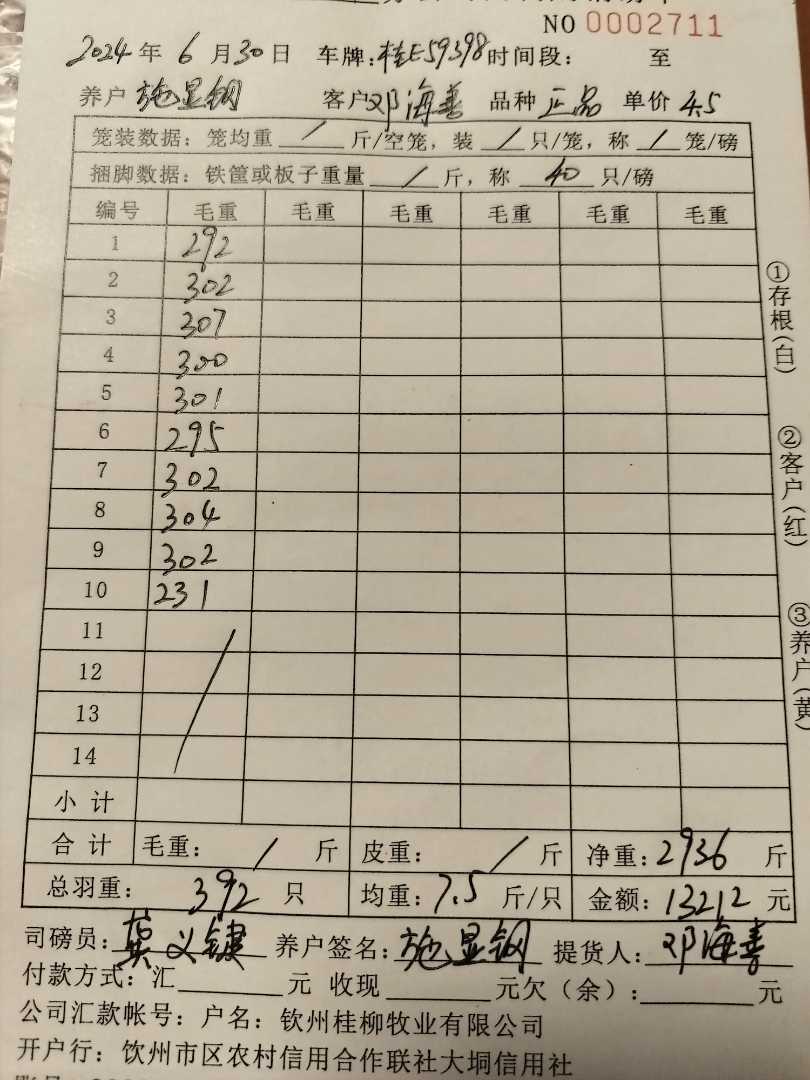 NO 0002711
2024 年 6 月 30 日 车牌：桂E59398 时间段： 至
养户 施显钢 客户 邓海善 品种 正品 单价 4.5
笼装数据：笼均重 / 斤/空笼，装 / 只/笼，称 / 笼/磅
捆脚数据：铁筐或板子重量 / 斤，称 40 只/磅
编号 毛重 毛重 毛重 毛重 毛重 毛重
1 292
2 302
3 307
4 300
5 301
6 295
7 302
8 304
9 302
10 231
11
12
13
14
小计
合计 毛重： / 斤 皮重： / 斤 净重：2936 斤
总羽重： 392 只 均重：7.5 斤/只 金额：13212 元
司磅员：龚义键 养户签名：施显钢 提货人：邓海善
付款方式：汇 元 收现 元欠（余）： 元
公司汇款帐号：户名：钦州桂柳牧业有限公司
开户行：钦州市区农村信用合作联社大垌信用社
①存根(白)
②客户(红)
③养户(黄)